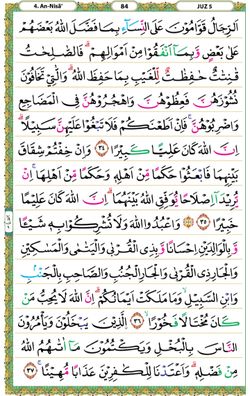 4. An-Nisā' 84 JUZ 5
اَلرِّجَالُ قَوَّامُوْنَ عَلَى النِّسَآءِ بِمَا فَضَّلَ اللّٰهُ بَعْضَهُمْ
عَلٰى بَعْضٍ وَّبِمَآ اَنْفَقُوْا مِنْ اَمْوَالِهِمْ ۗ فَالصّٰلِحٰتُ
قٰنِتٰتٌ حٰفِظٰتٌ لِّلْغَيْبِ بِمَا حَفِظَ اللّٰهُ ۗ وَالّٰتِيْ تَخَافُوْنَ
نُشُوْزَهُنَّ فَعِظُوْهُنَّ وَاهْجُرُوْهُنَّ فِى الْمَضَاجِعِ
وَاضْرِبُوْهُنَّ ۚ فَاِنْ اَطَعْنَكُمْ فَلَا تَبْغُوْا عَلَيْهِنَّ سَبِيْلًا ۗ
اِنَّ اللّٰهَ كَانَ عَلِيًّا كَبِيْرًا ﴿٣٤﴾ وَاِنْ خِفْتُمْ شِقَاقَ
بَيْنِهِمَا فَابْعَثُوْا حَكَمًا مِّنْ اَهْلِهٖ وَحَكَمًا مِّنْ اَهْلِهَا ۚ اِنْ
يُّرِيْدَآ اِصْلَاحًا يُّوَفِّقِ اللّٰهُ بَيْنَهُمَا ۗ اِنَّ اللّٰهَ كَانَ عَلِيْمًا
خَبِيْرًا ﴿٣٥﴾ وَاعْبُدُوا اللّٰهَ وَلَا تُشْرِكُوْا بِهٖ شَيْـًٔا
وَّبِالْوَالِدَيْنِ اِحْسَانًا وَّبِذِى الْقُرْبٰى وَالْيَتٰمٰى وَالْمَسٰكِيْنِ
وَالْجَارِ ذِى الْقُرْبٰى وَالْجَارِ الْجُنُبِ وَالصَّاحِبِ بِالْجَنْۢبِ
وَابْنِ السَّبِيْلِ ۙ وَمَا مَلَكَتْ اَيْمَانُكُمْ ۗ اِنَّ اللّٰهَ لَا يُحِبُّ مَنْ
كَانَ مُخْتَالًا فَخُوْرًا ﴿٣٦﴾ الَّذِيْنَ يَبْخَلُوْنَ وَيَأْمُرُوْنَ
النَّاسَ بِالْبُخْلِ وَيَكْتُمُوْنَ مَآ اٰتٰىهُمُ اللّٰهُ
مِنْ فَضْلِهٖ ۗ وَاَعْتَدْنَا لِلْكٰفِرِيْنَ عَذَابًا مُّهِيْنًا ﴿٣٧﴾